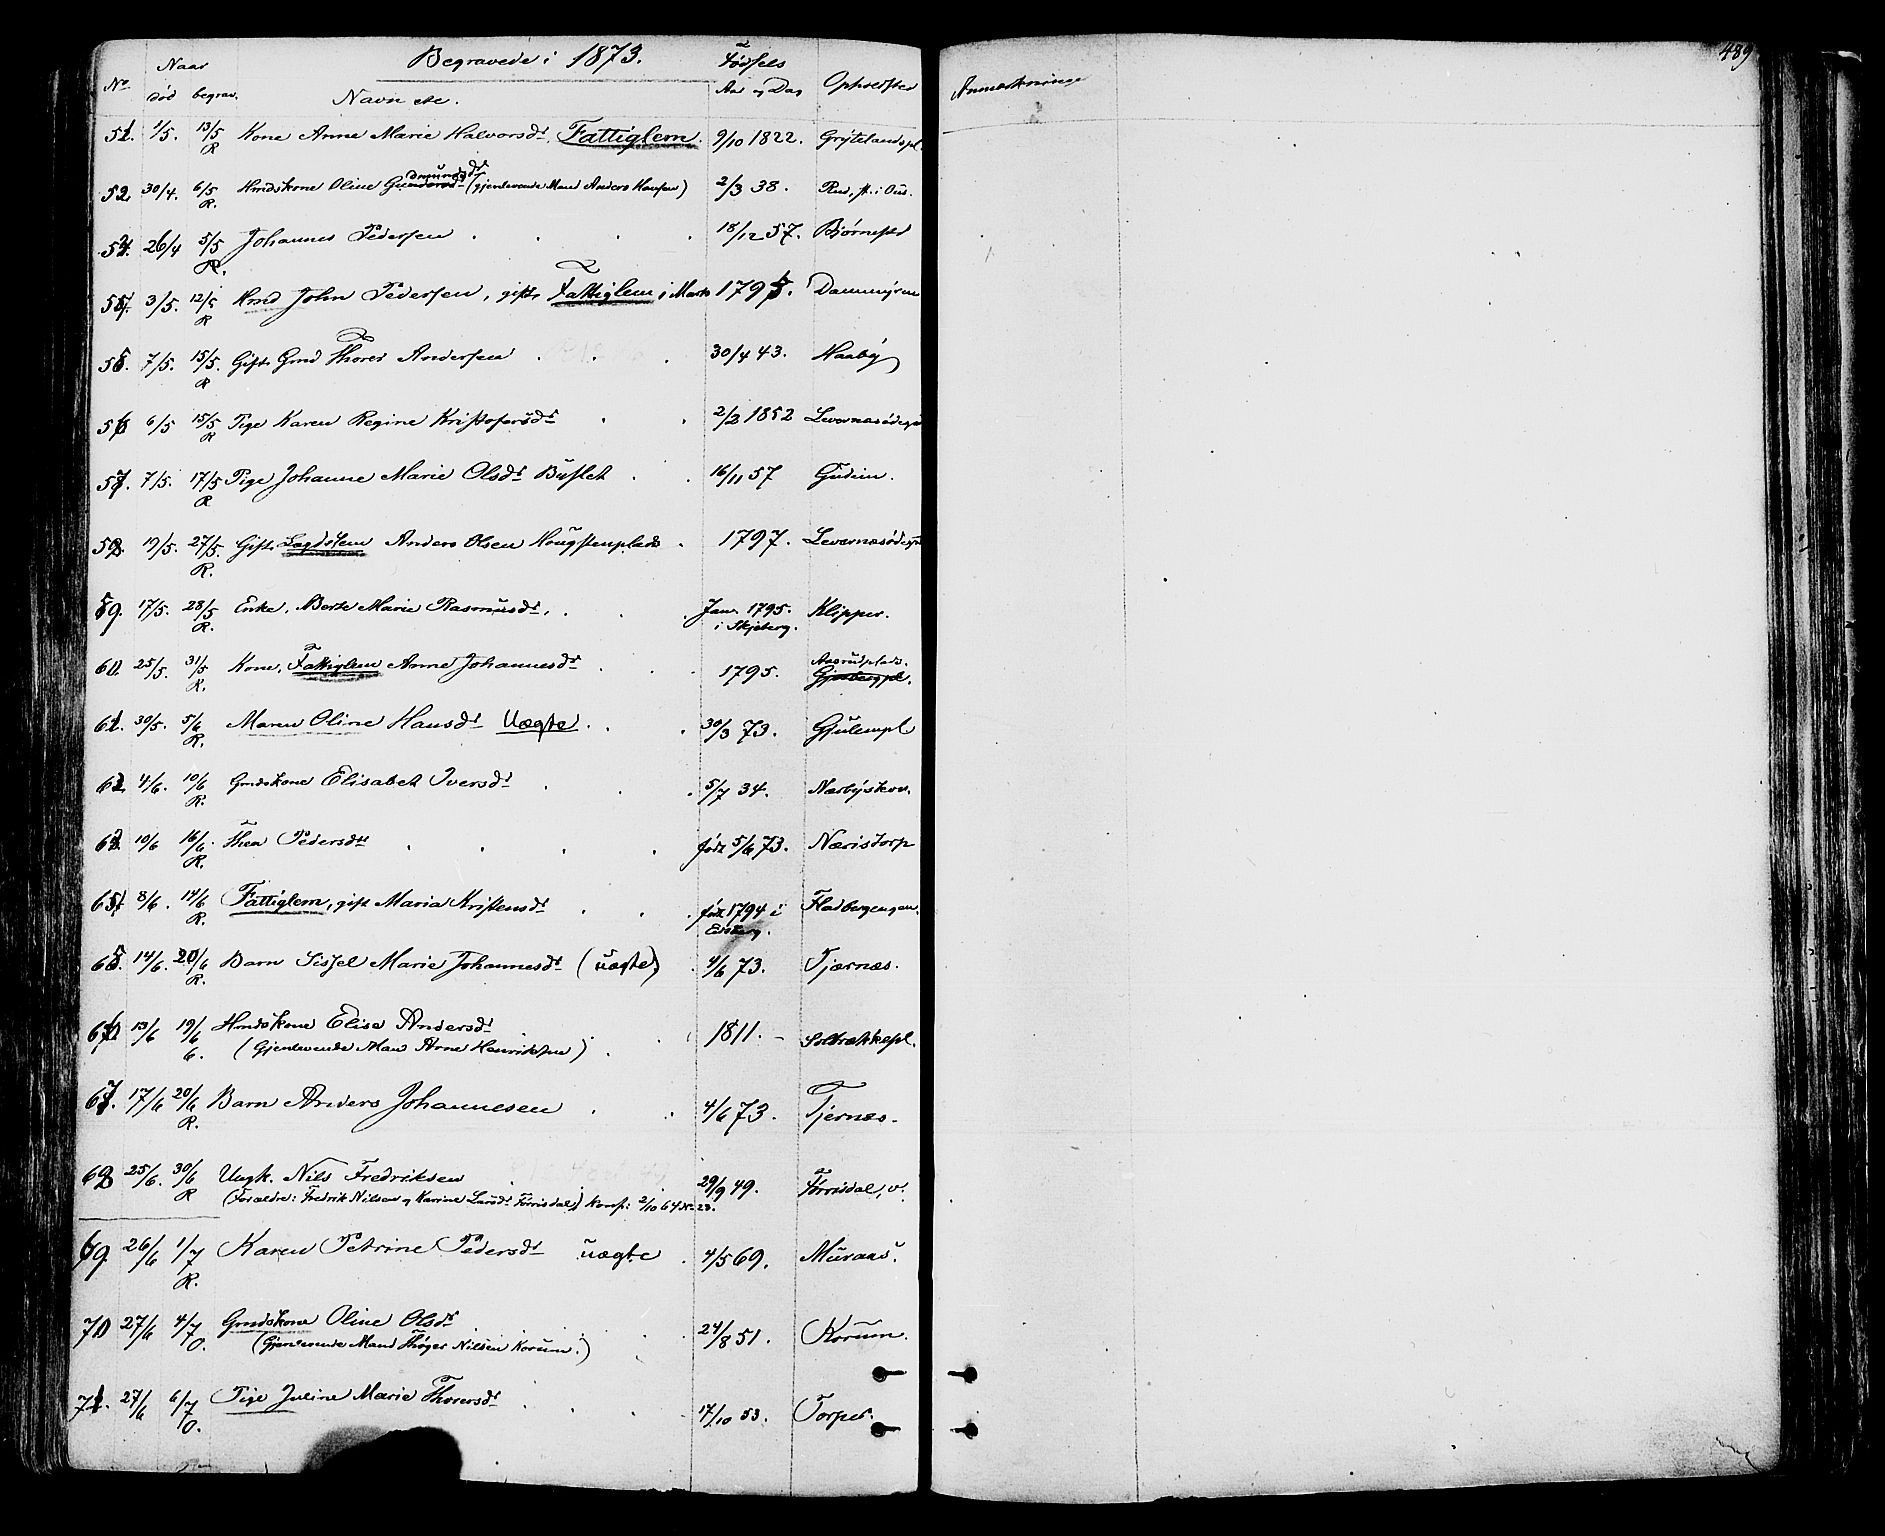 489
Begravede i 1873.
No Naar Fødsels
død begrav. Navn etc. Aar og Dag Opholdsted Anmærkninger
51. 1/5. 13/5 Kone Anne Marie Halvorsdr. Fattiglem. 9/10 1822. Grytelandspl.
R
52. 30/4. 6/5 Hmdskone Oline Gudmundsdr (gjenlevende Mand Anders Hansen) 2/3 38. Rud,
R.
26/4 5/5 Johannes Pedersen 18/12 57. Bjørnstad
R.
3/5. 12/5 Hmd John Pedersen, gift, Fattiglem i Mark 1795. Dammyren
R
55. 7/5. 15/5. Gift Gmd Thorer Andersen 30/4 43. Haaby
R
56 6/5 15/5 Pige Karen Regine Kristofersdr 2/2 1852 Levernæsødegd
R
57. 7/5. 17/5 Pige Johanne Marie Olsdr Buslet 16/11 57 Gudim.
R
58. 19/5. 27/5. Gift Lægdslem Anders Olsen Hougstenplads 1797. Levernæsødegd
R.
59. 17/5. 28/5 Enke. Berte Marie Rasmusdr. Jan. 1795. Klipper.
R. i Skjeberg.
60. 25/5. 31/5 Kone, Fattiglem Anne Johannesdr 1795. Aasrudplads.
R.
61. 30/5. 5/6 Maren Oline Hansdr Uægte. 30/3 73. Gjulempl
R.
62. 4/6. 10/6 Gmdskone Elisabet Iversdr 5/7 34. Nærbyskov.
R.
63. 10/6 16/6. Thea Pedersdtr født 5/6 73. Næristorp
R.
64. 8/6. 14/6 Fattiglem, gift Maria Kristensdr født 1794 i Fladbergengen.
R. Eidsberg.
65. 14/6. 20/6 Barn Sissel Marie Johannesdr (uægte) 4/6 73. Tjærnæs.
R.
66 13/6 19/6 Hmdskone Elise Andersdr 1811. Solbrækkepl.
6. (Gjenlevende Man Arne Henriksen)
67. 17/6 20/6 Barn Anders Johannesen 4/6 73. Tjernæs.
R.
68 25/6. 30/6 Ungk. Nils Fredriksen 29/9 49. Torrisdal, v.
R (Forældre: Fredrik Nilsen og Karine Larsdr Torrisdal) Konf: 2/10 64 No 23.
69. 26/6 1/7 Karen Petrine Pedersdr uægte 4/5 69. Muraas.
R.
70 27/6 4/7 Gmdskone Oline Olsdr 24/8 51. Korum.
O. (Gjenlevende Mand Thøger Nilsen Korum.)
71. 27/6 6/7 Pige Juline Marie Thorersdr 17/10 53. Torper.
O.